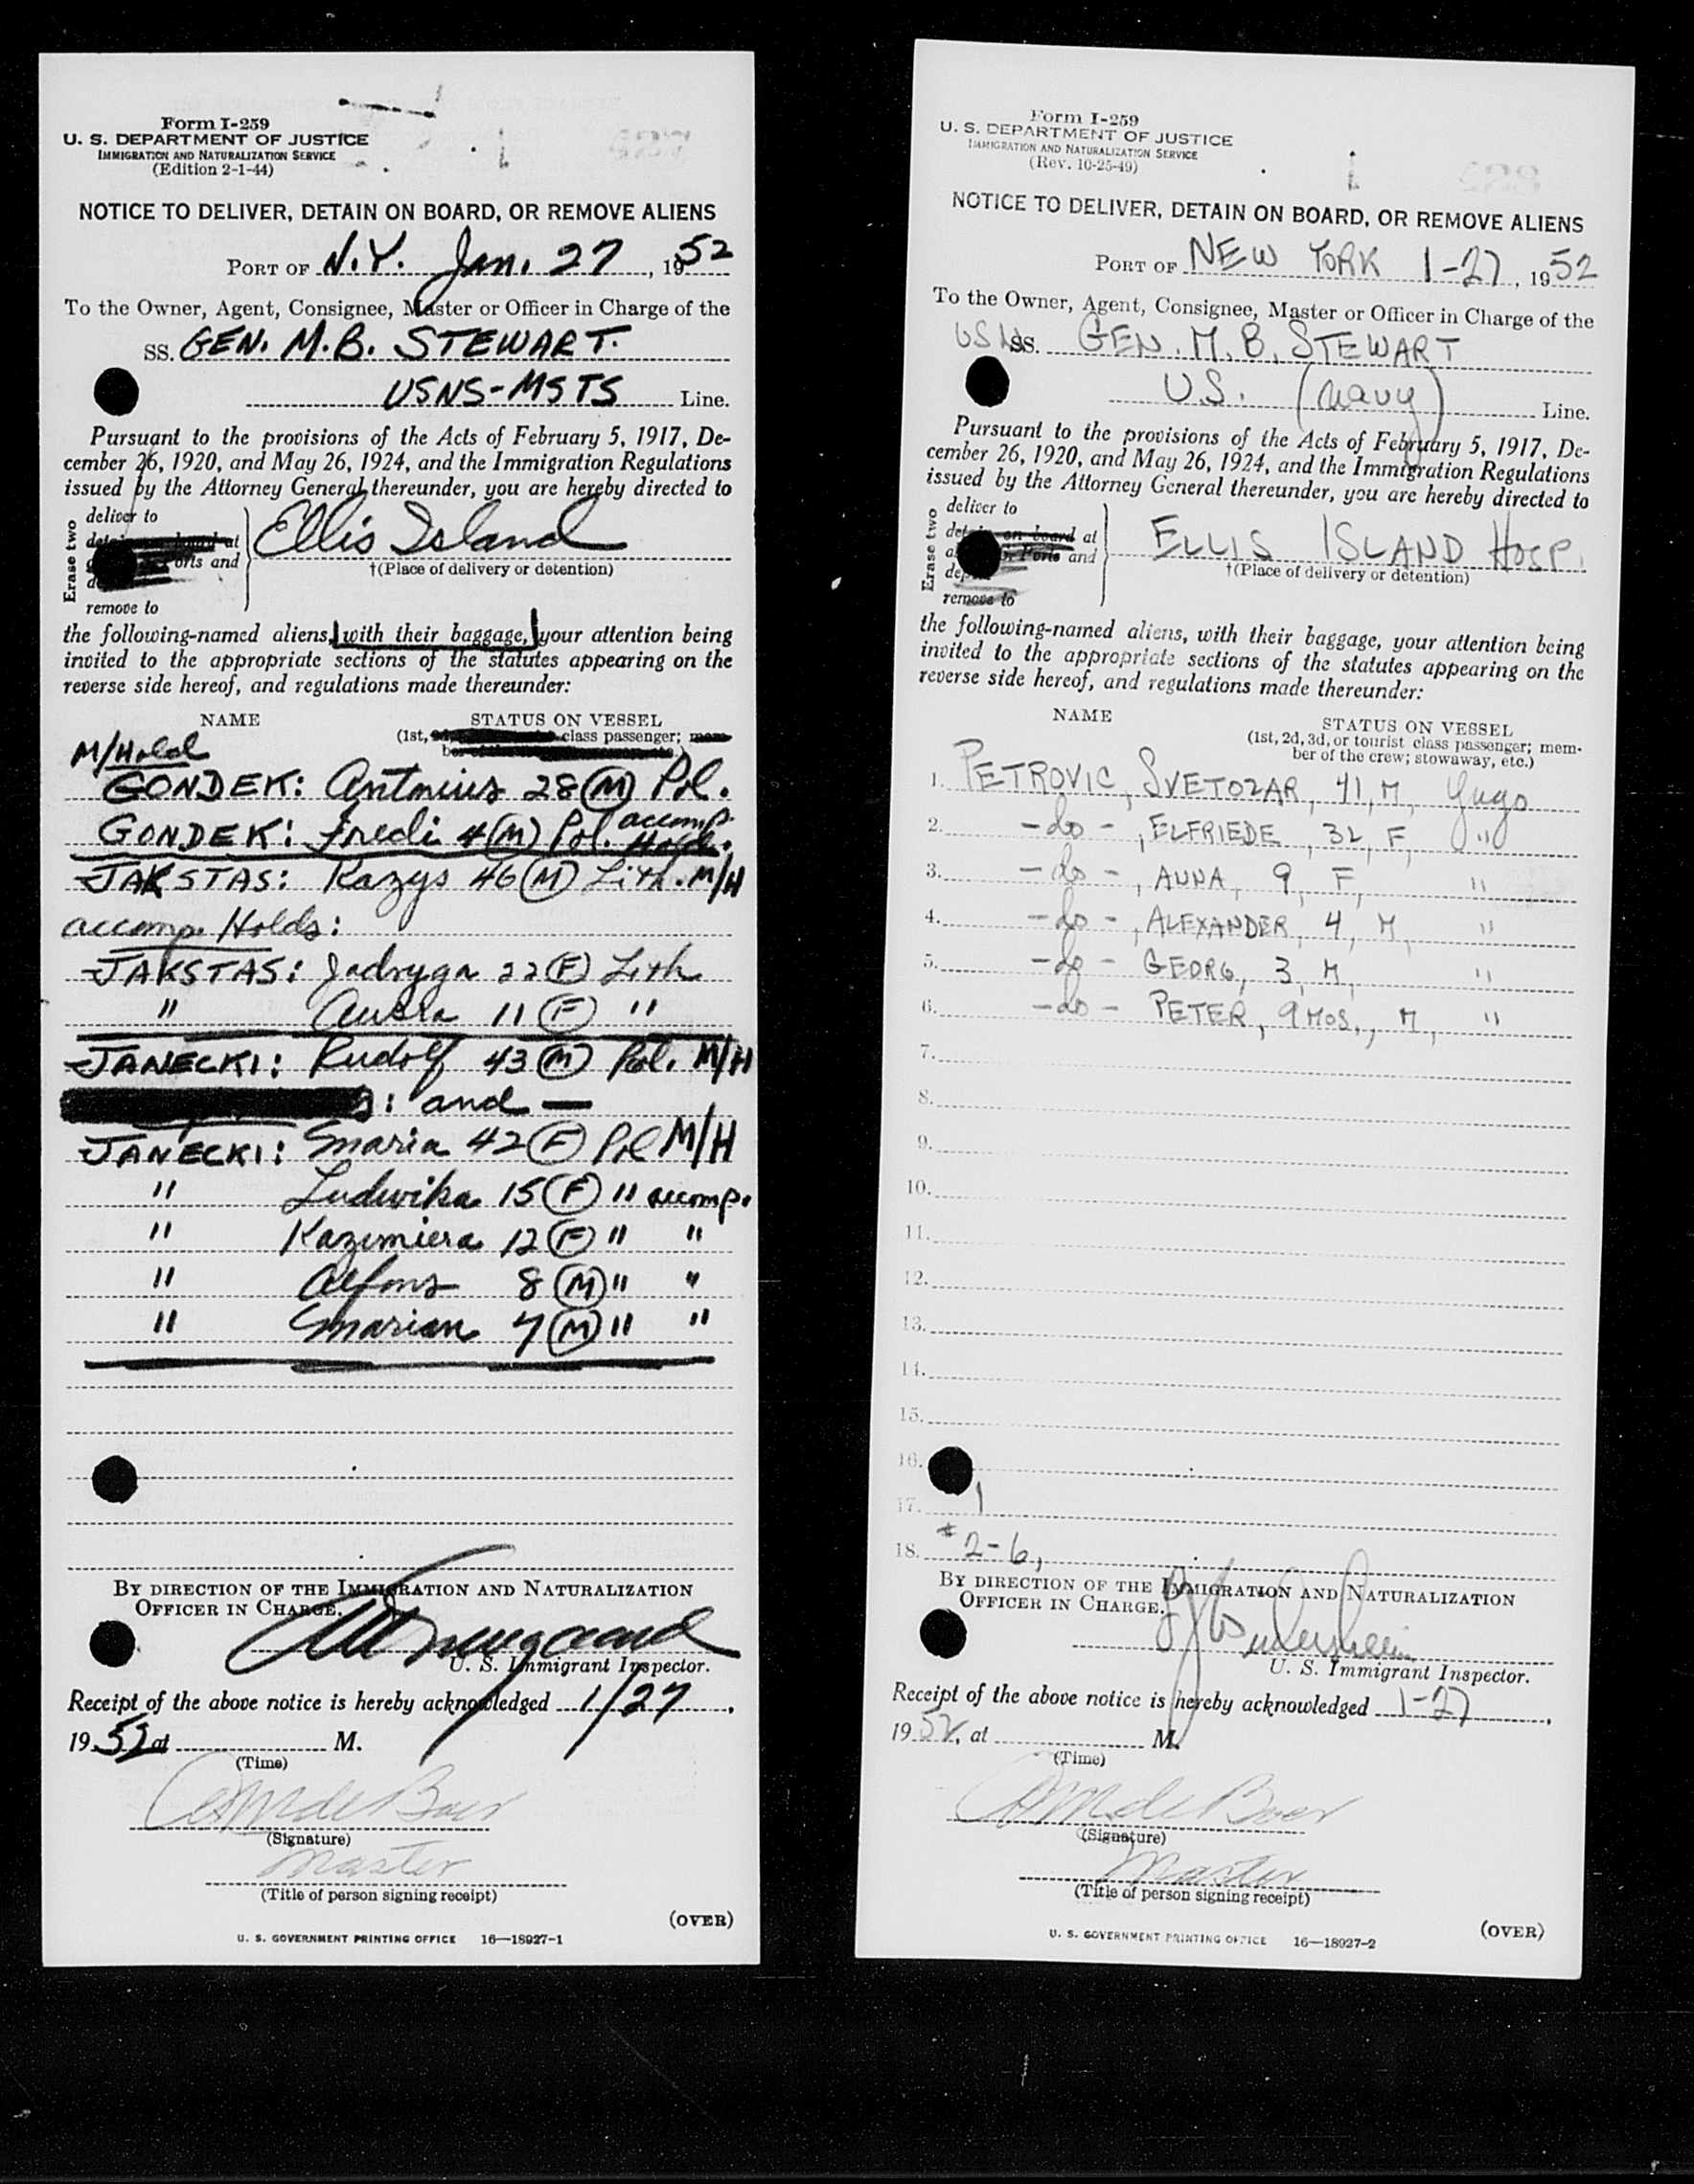 Form I-259
U. S. DEPARTMENT OF JUSTICE
IMMIGRATION AND NATURALIZATION SERVICE
(Edition 2-1-44)
NOTICE TO DELIVER, DETAIN ON BOARD, OR REMOVE ALIENS
PORT OF N.Y. Jan. 27, 1952
To the Owner, Agent, Consignee, Master or Officer in Charge of the
SS. GEN. M.B. STEWART.
USNS-MSTS Line.
Pursuant to the provisions of the Acts of February 5, 1917, De-
cember 26, 1920, and May 26, 1924, and the Immigration Regulations
issued by the Attorney General thereunder, you are hereby directed to
Erase two
deliver to
at
orts and
remove to
Ellis Island
†(Place of delivery or detention)
the following-named aliens, with their baggage, your attention being
invited to the appropriate sections of the statutes appearing on the
reverse side hereof, and regulations made thereunder:
NAME STATUS ON VESSEL
(1st, class passenger;
M/Hold
GONDEK: Antonius 28 (M) Pol.
GONDEK: Fredi 4 (M) Pol. accomp. Hold.
JAKSTAS: Kazys 46 (M) Lith. M/H
accomp. Holds:
JAKSTAS: Jadvyga 22 (F) Lith
" 11 (F) "
JANECKI: Rudolf 43 (M) Pol. M/H
: and —
JANECKI: Maria 42 (F) Pol M/H
" Ludwika 15 (F) " accomp.
" Kazimiera 12 (F) " "
" Alfons 8 (M) " "
" Marian 7 (M) " "
BY DIRECTION OF THE IMMIGRATION AND NATURALIZATION
OFFICER IN CHARGE.
U. S. Immigrant Inspector.
Receipt of the above notice is hereby acknowledged 1/27,
1952 at M.
(Time)
de Boer
(Signature)
Master
(Title of person signing receipt)
(OVER)
U. S. GOVERNMENT PRINTING OFFICE 16—18927-1
Form I-259
U. S. DEPARTMENT OF JUSTICE
IMMIGRATION AND NATURALIZATION SERVICE
(Rev. 10-25-49)
NOTICE TO DELIVER, DETAIN ON BOARD, OR REMOVE ALIENS
PORT OF NEW YORK 1-27, 1952
To the Owner, Agent, Consignee, Master or Officer in Charge of the
SS. GEN. M. B. STEWART
U.S. (Navy) Line.
Pursuant to the provisions of the Acts of February 5, 1917, De-
cember 26, 1920, and May 26, 1924, and the Immigration Regulations
issued by the Attorney General thereunder, you are hereby directed to
Erase two
deliver to
on board at
Ports and
remove to
ELLIS ISLAND HOSP.
†(Place of delivery or detention)
the following-named aliens, with their baggage, your attention being
invited to the appropriate sections of the statutes appearing on the
reverse side hereof, and regulations made thereunder:
NAME STATUS ON VESSEL
(1st, 2d, 3d, or tourist class passenger; mem-
ber of the crew; stowaway, etc.)
1. PETROVIC, SVETOZAR, 41, M, Yugo
2. -do-, ELFRIEDE, 32, F, "
3. -do-, ANNA, 9, F, "
4. -do-, ALEXANDER, 4, M, "
5. -do- GEORG, 3, M, "
6. -do- PETER, 9 MOS., M, "
7.
8.
9.
10.
11.
12.
13.
14.
15.
16.
17. 1
18. # 2-6,
BY DIRECTION OF THE IMMIGRATION AND NATURALIZATION
OFFICER IN CHARGE.
U. S. Immigrant Inspector.
Receipt of the above notice is hereby acknowledged 1-27,
1952, at M.
(Time)
de Boer
(Signature)
Master
(Title of person signing receipt)
(OVER)
U. S. GOVERNMENT PRINTING OFFICE 16—18927-2